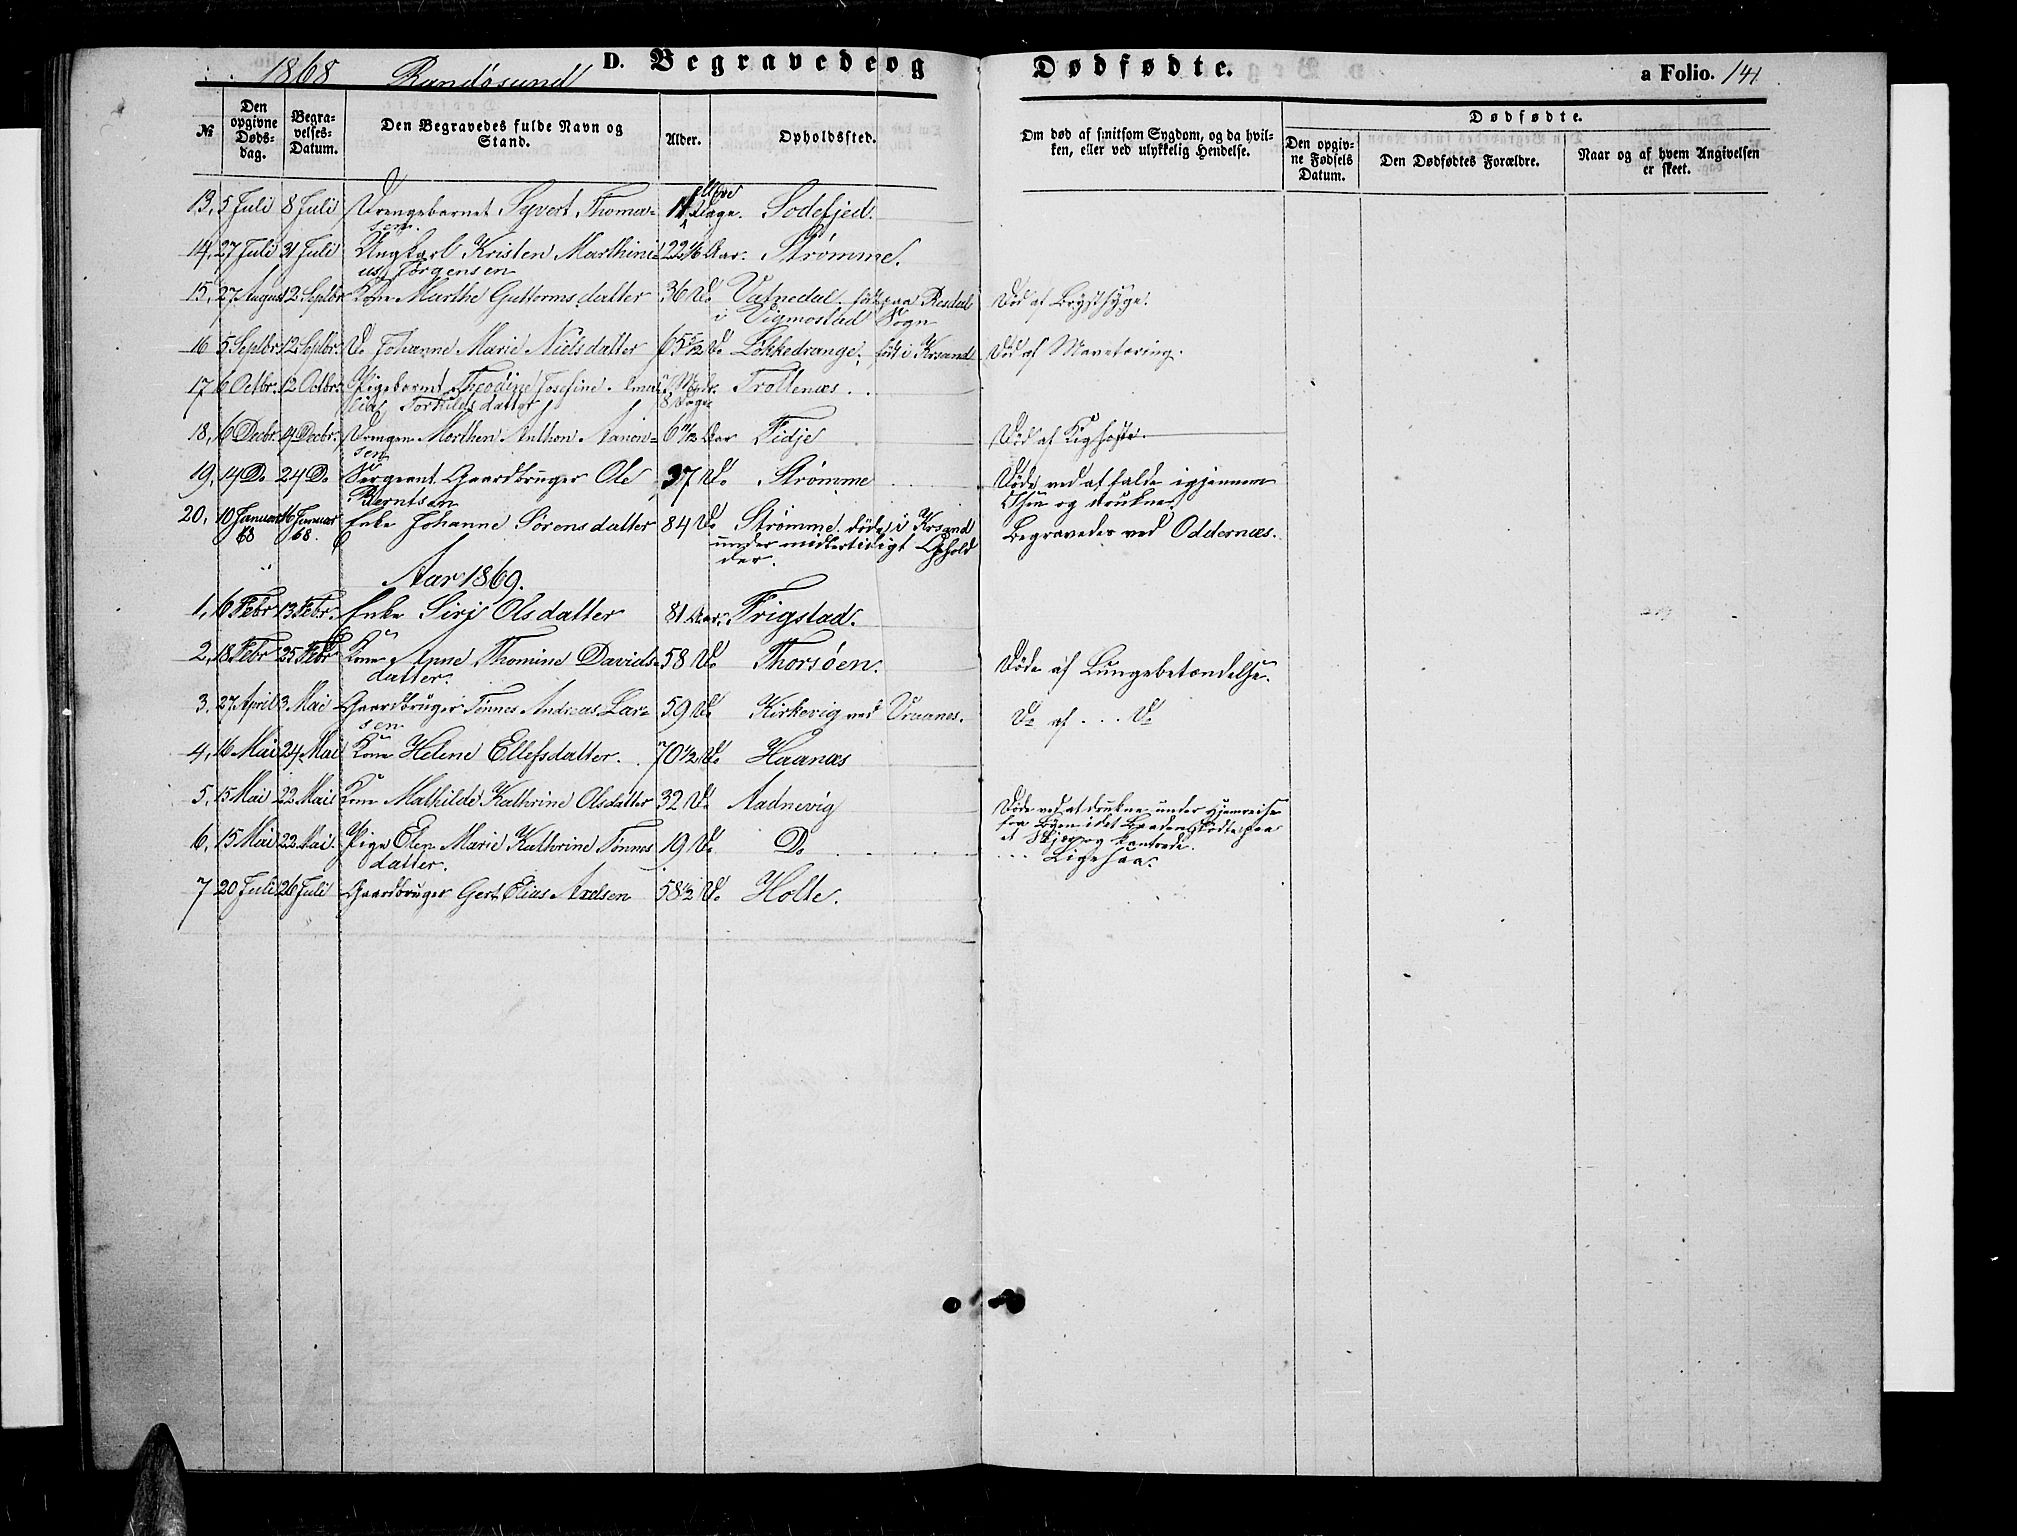 1868 Randøsund D. Begravede og Dødfødte. a Folio. 141
№ Den opgivne Døds-dag. Begra-velses-Datum. Den Begravedes fulde Navn og Stand. Alder. Opholdssted. Om død af smitsom Sygdom, og da hvil-ken, eller ved ulykkelig Hendelse. Dødfødte.
Den opgiv-ne Fødsels Datum. Den Dødfødtes Forældre. Naar og af hvem Angivelsen er skeet.
13, 5 Juli 8 Juli Drengebarnet Syvert Thomas- 11 Dage. Sodefjed.
sen.
14, 27 Juli 31 Juli Ungkarl Kristen Marthini- 22 Aar. Strømme.
us Jørgensen
15, 27 August 12 Septbr Kone Marthe Guttormsdatter 36 Do Vatnedal, født paa Resdal Død af Brystsyge.
i Vigmostad Sogn
16 5 Septbr. 12 Septbr. Do Johanne Marie Nielsdatter 65 Do Løkkedrange, født i Krsand Død af Mavetæring.
17, 6 Octbr. 12 Octbr. Pigebarnet Theodine Josefine Ama- Trollenæs.
lia Torkildsdatter 8 Dage
18, 6 Decbr. 14 Decbr. Drengen Morthen Anthon Aanon- 6 11/12 Aar Fidje Død af Kighoste.
sen
19, 14 Do 24 Do Sergeant Gaardbruger Ole 37 Do Strømme Døde ved at falde igjennem
Berntsen Isen og drukne.
20, 10 Januar 68 16 Januar 68. Enke Johanne Sørensdatter 84 Do Strømme, døde i Krsand Begravedes ved Oddernæs.
under midlertidigt Ophold
der.
Aar 1869.
1, 6 Febr 13 Febr. Enke Siri Olsdatter 81 Aar. Frigstad.
2, 18 Febr 25 Febr Kone Anne Thomine Davids- 58 Do Thorsøen. Døde af Lungebetændelse.
datter.
3, 27 April 3 Mai Gaardbruger Tønnes Andreas Lar- 59 Do Kirkevig ved Vraanes. Do af ... Do
sen
4, 16 Mai 24 Mai Kone Helene Ellefsdatter. 70 1/2 Do Haanæs
5, 15 Mai 22 Mai Kone Mathilde Kathrine Olsdatter 32 Do Aadnevig Døde ved at drukne under Hjemreise
fra Byen idet Baaden stødte paa
6, 15 Mai 22 Mai. Pige Elen Marie Kathrine Tønnes 19 Do Do et Skjær og kantrede.
datter. ... Ligesaa.
7 20 Juli 26 Juli Gaardbruger Gert Elias Axelsen 58 1/2 Do Holte.